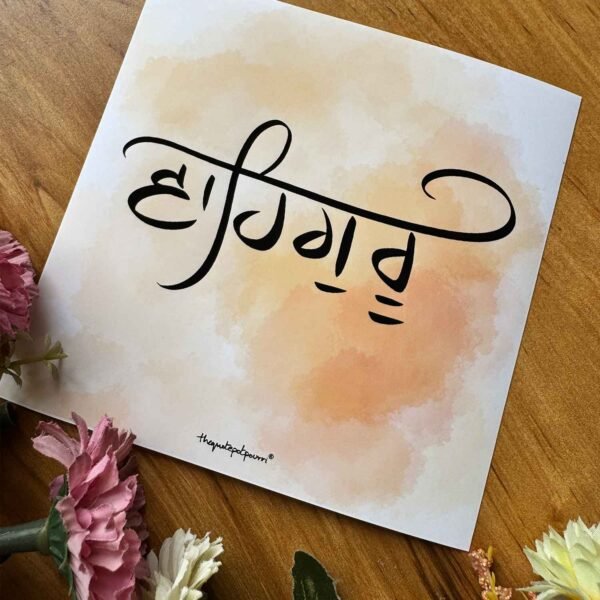 ਵਾਹਿਗੁਰੂ
thequotepotpourri®